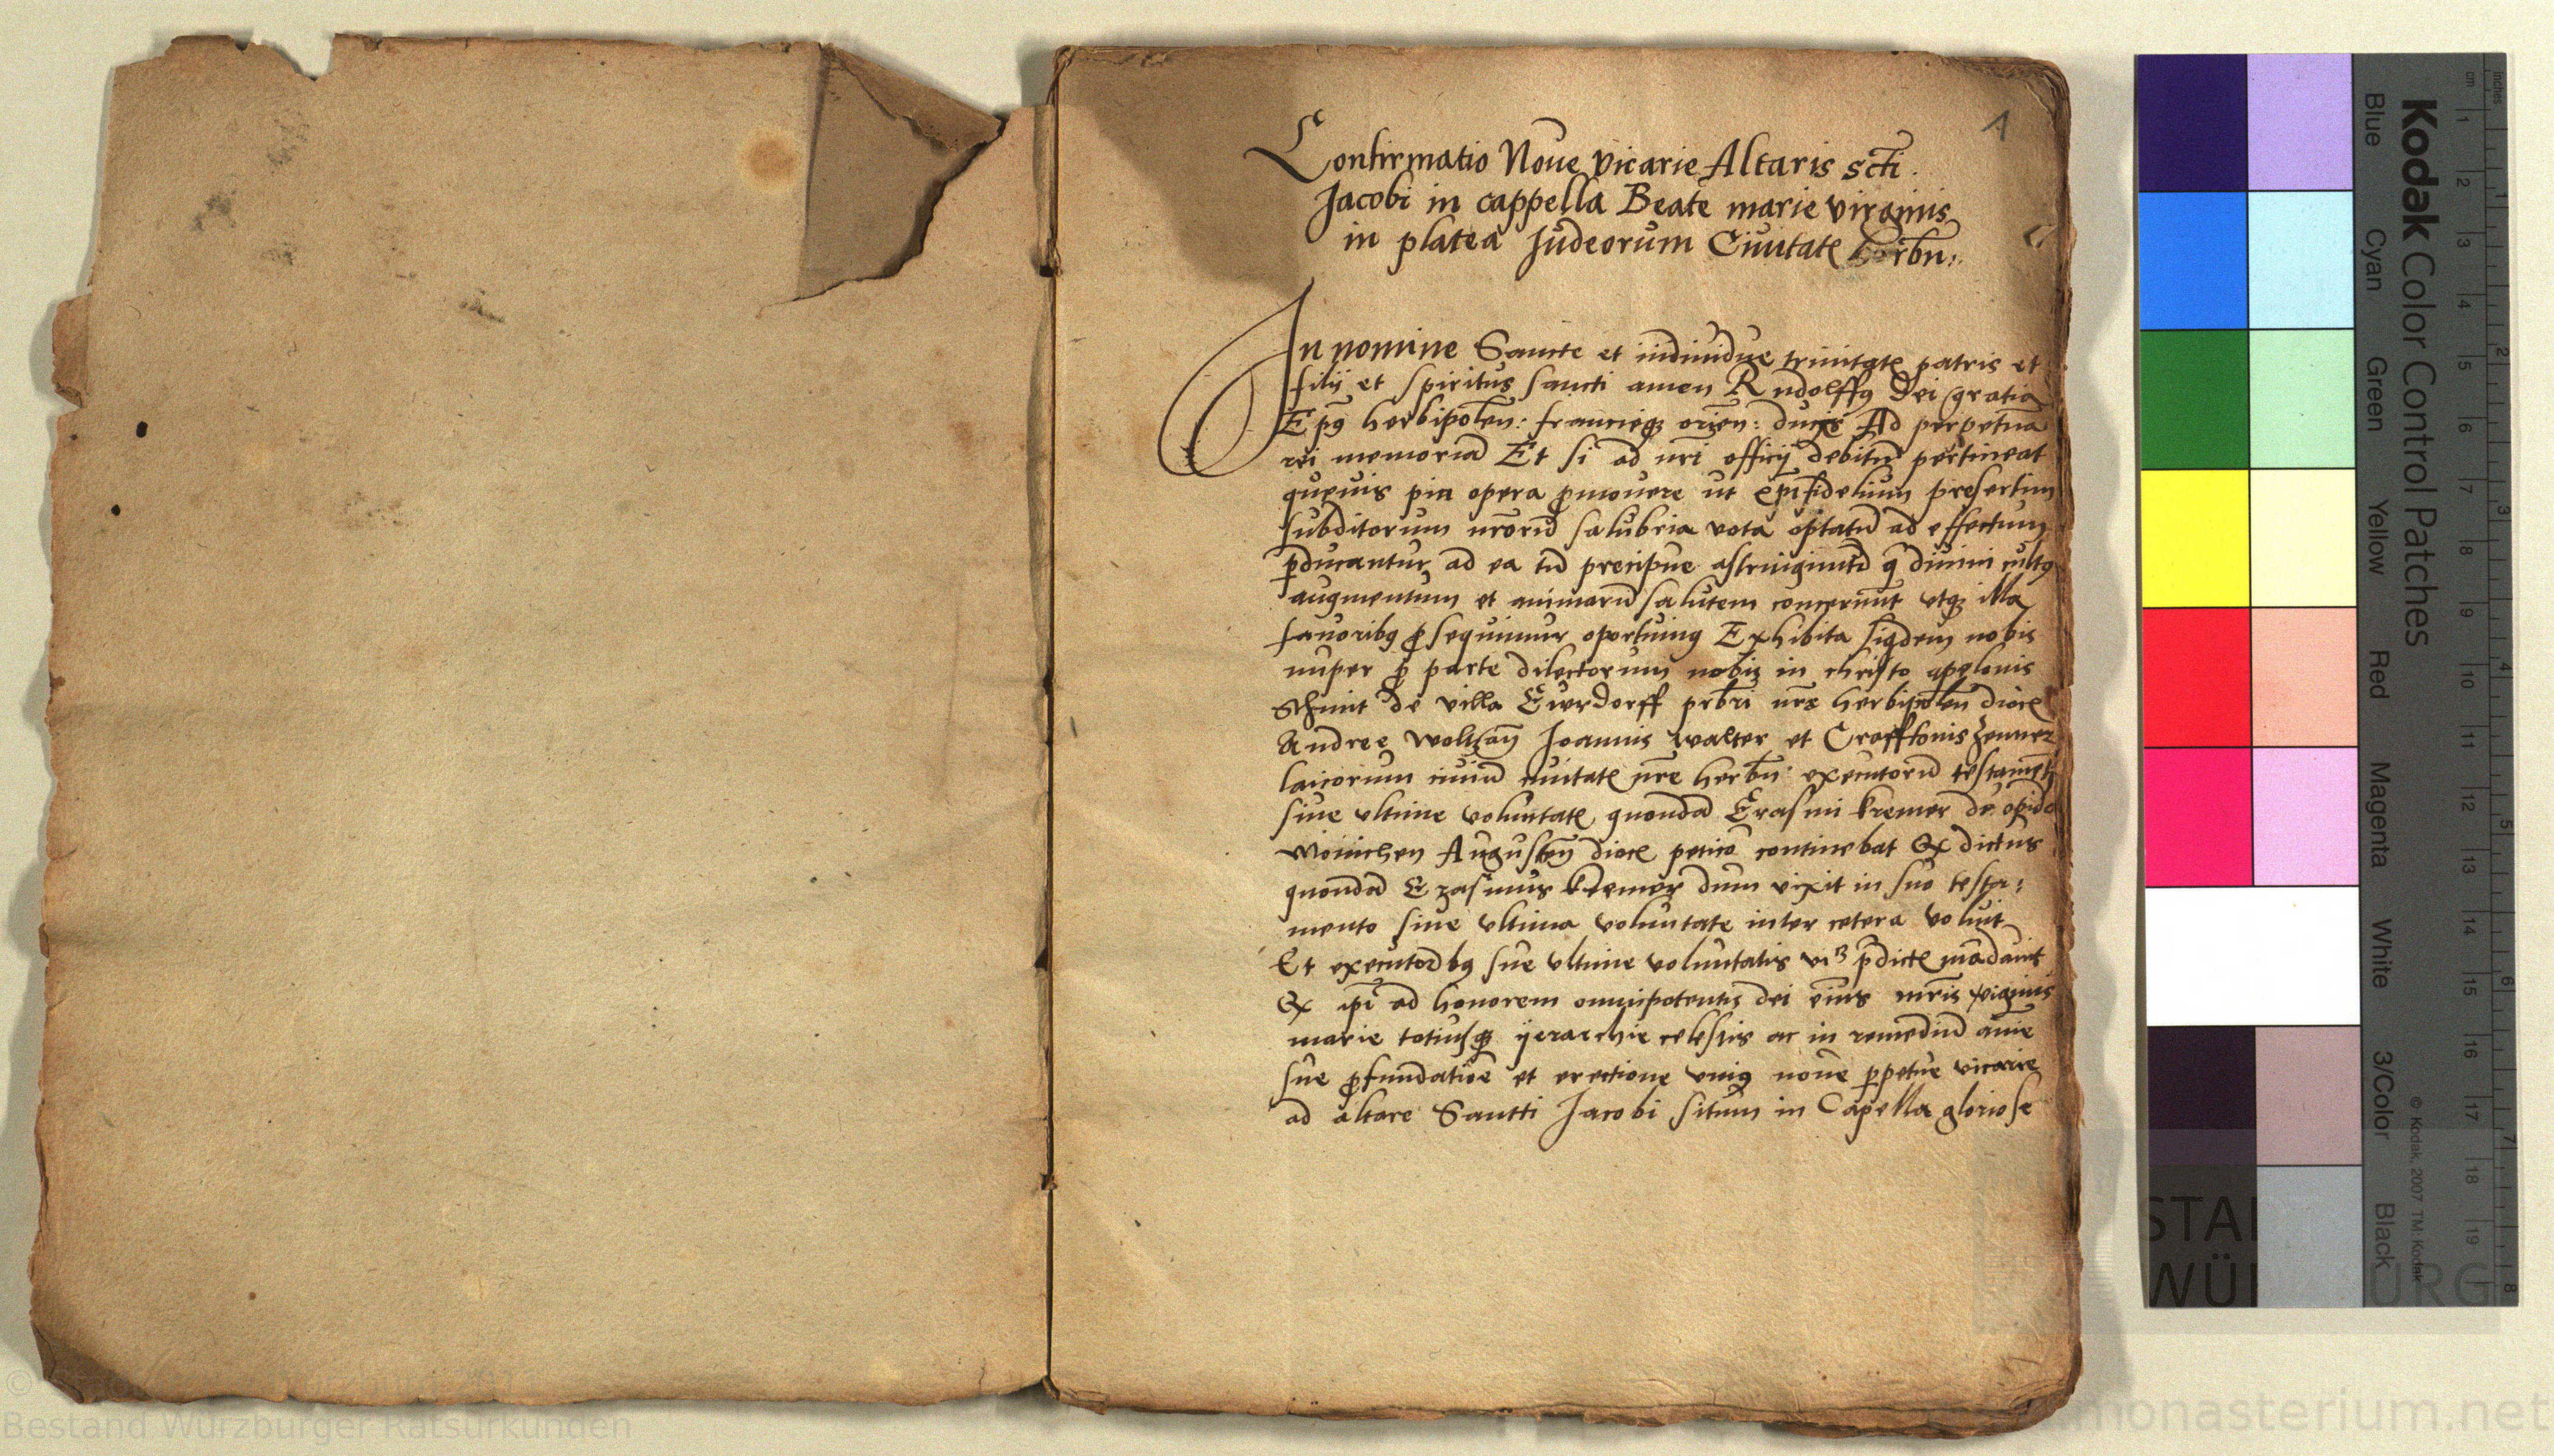 1
Confirmatio Noue vicarie Altaris scti
Jacobi in cappella Beate marie virginis
in platea Judeorum Ciuitate herbn:
In nomine Sancte et indiuidue trinitate patris et
filij et spiritus sancti amen Rudolffus Dei gratia
Eps herbipolen: francieque orien: dux Ad perpetua
rei memoria Et si ad nri officij debitu pertineat
queuis pia opera promouere ut xpifidelium presertim
subditorum nroru salubria vota optatu ad effectum
perducantur ad ea tu precipue astringimur diuini cultus
augmentum et animaru salutem concernunt utque illa
fauoribus prosequimur oportunis Exhibita siquidem nobis
nuper pro parte dilectorum nobis in christo apelonis
Schmit de villa Eurdorff prbri nre herbipolen dioc
Andree Joannis walter et Crafftonis zenner
laicorum ciuiu ciuitate nre herbn: executoru testament
siue ultime voluntate quonda Erasmi kremer de opido
Monichen Augusten dioc petico continebat Qx dictus
quonda Erasmus kremer dum vixit in suo testa:
mento siue ultima voluntate inter cetera voluit
Et executoribus sue ultime voluntatis predicte madauit
Qx ipi ad honorem omnipotentis dei eius mris virginis
marie totiusque ijerarchie celestis ac in remediu aie
sue pro fundatioe et erectione unius noue perpetue vicarie
ad altare Santti Jacobi situm in Capella gloriose
Kodak Color Control Patches
Blue Cyan Green Yellow Red Magenta White 3/Color Black
© Kodak, 2007 TM: Kodak
cm 1 2 3 4 5 6 7 8 9 10 11 12 13 14 15 16 17 18 19
inches 1 2 3 4 5 6 7 8
Bestand Würzburger Ratsurkunden
monasterium.net